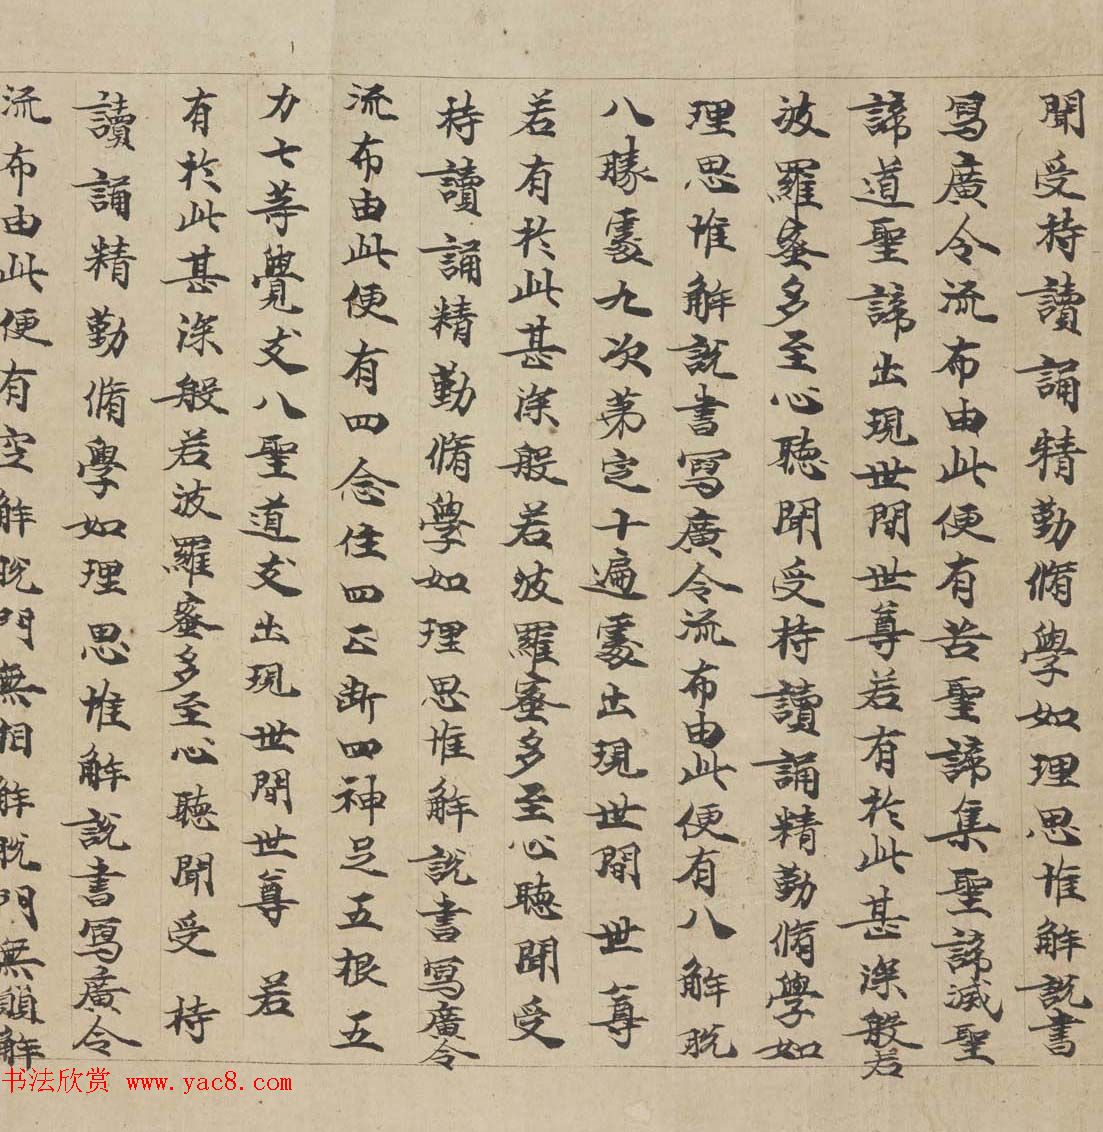 聞受持讀誦精勤脩學如理思惟解說書
寫廣令流布由此便有苦聖諦集聖諦滅聖
諦道聖諦出現世間世尊若有於此甚深般若
波羅蜜多至心聽聞受持讀誦精勤脩學如
理思惟解說書寫廣令流布由此便有八解脫
八勝處九次第定十遍處出現世間世尊
若有於此甚深般若波羅蜜多至心聽聞受
持讀誦精勤脩學如理思惟解說書寫廣令
流布由此便有四念住四正断四神足五根五
力七等覺支八聖道支出現世間世尊若
有於此甚深般若波羅蜜多至心聽聞受持
讀誦精勤脩學如理思惟解說書寫廣令
流布由此便有空解脫門無相解脫門無願解
书法欣赏 www.yac8.com